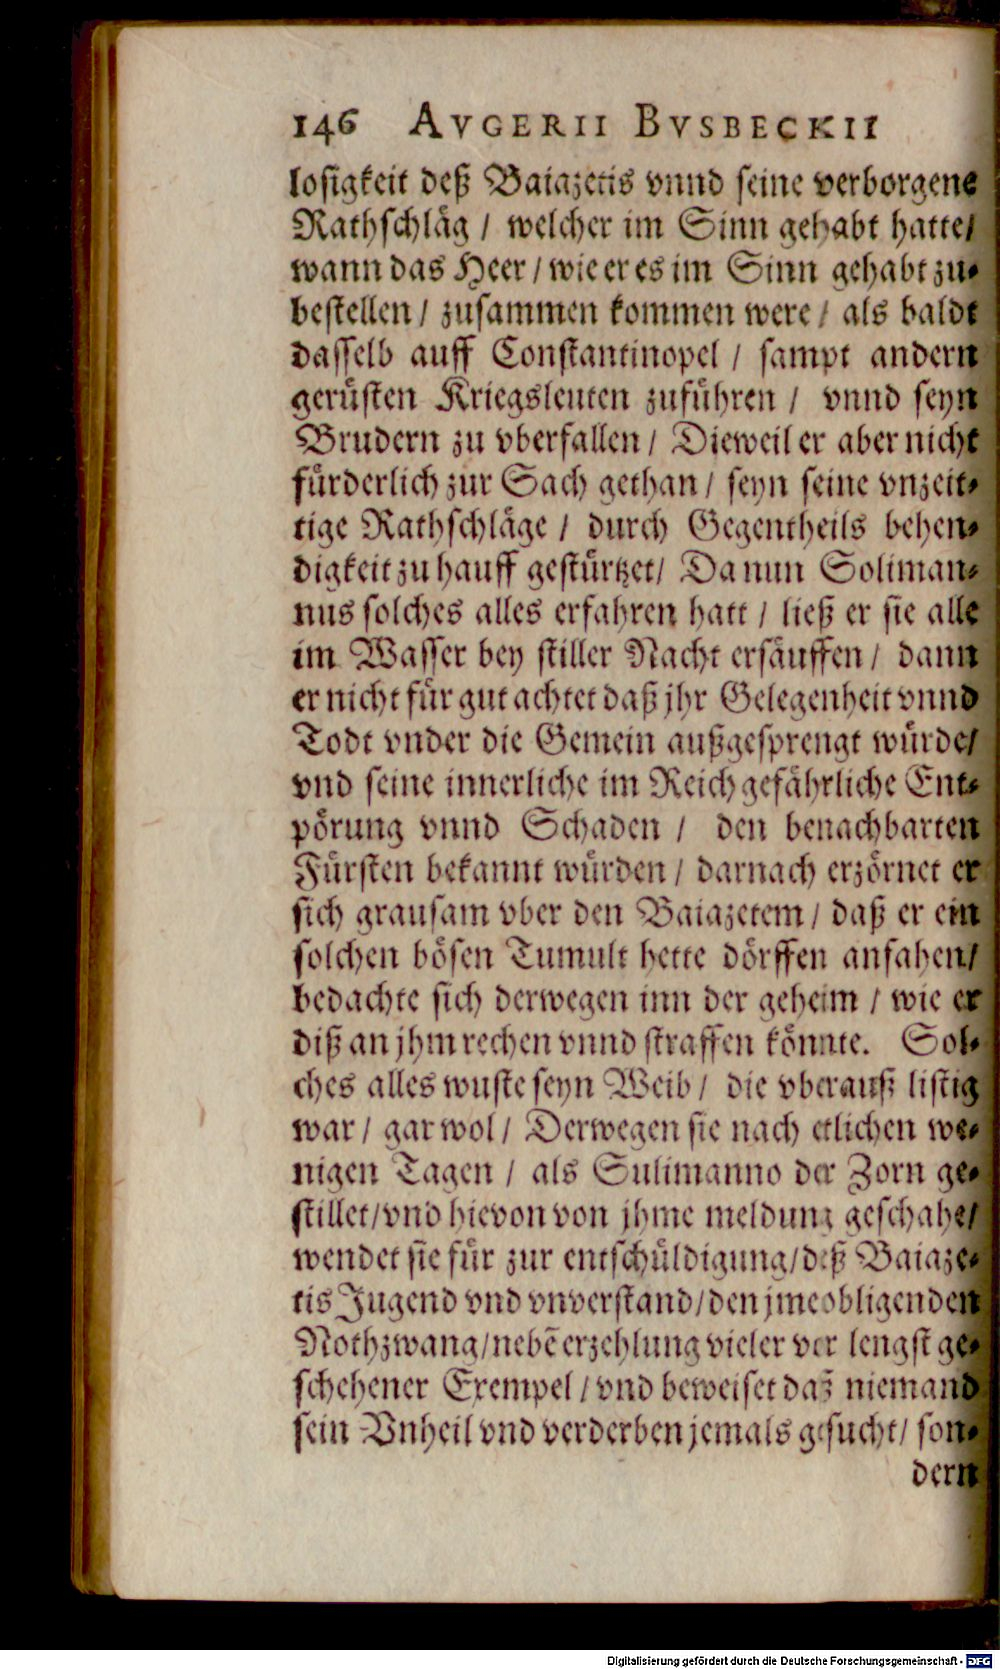 146 AVGERII BVSBECKII
losigkeit deß Baiazetis vnnd seine verborgene
Rathschläg / welcher im Sinn gehabt hatte/
wann das Heer / wie er es im Sinn gehabt zu-
bestellen / zusammen kommen were / als baldt
dasselb auff Constantinopel / sampt andern
gerüsten Kriegsleuten zuführen / vnnd seyn
Brudern zu vberfallen / Dieweil er aber nicht
fürderlich zur Sach gethan / seyn seine vnzeit-
tige Rathschläge / durch Gegentheils behen-
digkeit zu hauff gestürtzet/ Da nun Soliman-
nus solches alles erfahren hatt / ließ er sie alle
im Wasser bey stiller Nacht ersäuffen / dann
er nicht für gut achtet daß jhr Gelegenheit vnnd
Todt vnder die Gemein außgesprengt würde/
vnd seine innerliche im Reich gefährliche Ent-
pörung vnnd Schaden / den benachbarten
Fürsten bekannt würden / darnach erzörnet er
sich grausam vber den Baiazetem / daß er ein
solchen bösen Tumult hette dörffen anfahen/
bedachte sich derwegen inn der geheim / wie er
diß an jhm rechen vnnd straffen könnte. Sol-
ches alles wuste seyn Weib / die vberauß listig
war / gar wol / Derwegen sie nach etlichen we-
nigen Tagen / als Sulimanno der Zorn ge-
stillet/vnd hievon von jhme meldung geschahe/
wendet sie für zur entschüldigung/deß Baiaze-
tis Jugend vnd vnverstand/den jme obligenden
Nothzwang/nebē erzehlung vieler vor lengst ge-
schehener Exempel / vnd beweiset daß niemand
sein Vnheil vnd verderben jemals gesucht/ son-
dern
Digitalisierung gefördert durch die Deutsche Forschungsgemeinschaft - DFG